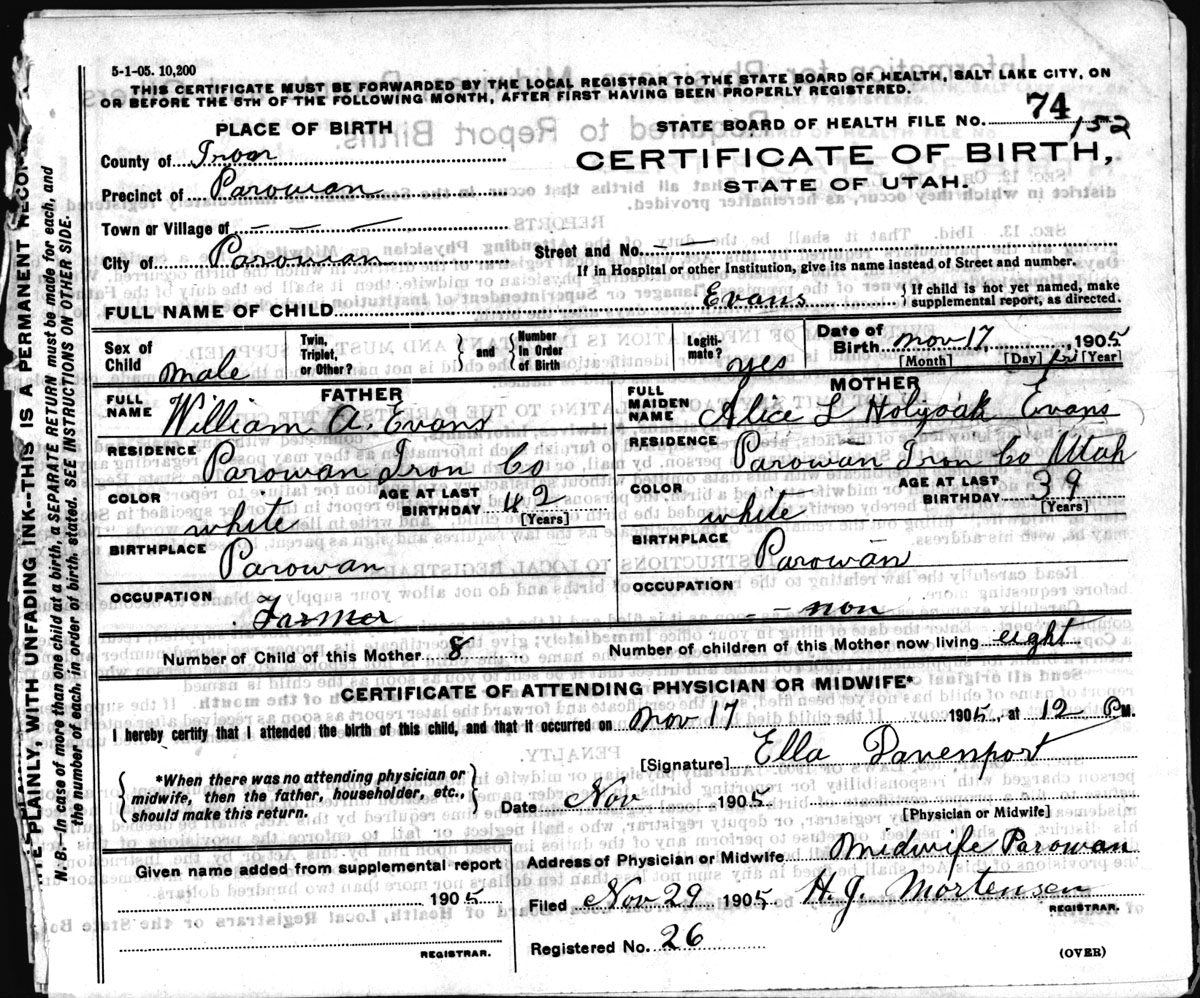 5-1-05. 10,200
THIS CERTIFICATE MUST BE FORWARDED BY THE LOCAL REGISTRAR TO THE STATE BOARD OF HEALTH, SALT LAKE CITY, ON
OR BEFORE THE 5TH OF THE FOLLOWING MONTH, AFTER FIRST HAVING BEEN PROPERLY REGISTERED.
PLACE OF BIRTH
STATE BOARD OF HEALTH FILE NO. 74 152
County of Iron
CERTIFICATE OF BIRTH,
Precinct of Parowan
STATE OF UTAH.
Town or Village of - - -
City of Parowan
Street and No. - -
If in Hospital or other Institution, give its name instead of Street and number.
FULL NAME OF CHILD Evans { If child is not yet named, make supplemental report, as directed.
Sex of Child male
Twin, Triplet, or Other? } and { Number in Order of Birth
Legiti-mate? yes
Date of Birth Nov 17, 1905
[Month] [Day] [Year]
FATHER
MOTHER
FULL NAME William A. Evans
FULL MAIDEN NAME Alice L Holyoak Evans
RESIDENCE Parowan Iron Co
RESIDENCE Parowan Iron Co Utah
COLOR white
AGE AT LAST BIRTHDAY 42 [Years]
COLOR white
AGE AT LAST BIRTHDAY 39 [Years]
BIRTHPLACE Parowan
BIRTHPLACE Parowan
OCCUPATION Farmer
OCCUPATION - - non
Number of Child of this Mother 8
Number of children of this Mother now living eight
CERTIFICATE OF ATTENDING PHYSICIAN OR MIDWIFE*
I hereby certify that I attended the birth of this child, and that it occurred on Nov 17 1905, at 12 P M.
[Signature] Ella Davenport
{ *When there was no attending physician or midwife, then the father, householder, etc., should make this return. }
Date Nov 1905
[Physician or Midwife]
Given name added from supplemental report
1905
REGISTRAR.
Address of Physician or Midwife Midwife Parowan
Filed Nov 29 1905 H. J. Mortensen
REGISTRAR.
Registered No. 26
(OVER)
WITH UNFADING INK--THIS IS A PERMANENT
N. B.--In case of more than one child at a birth, a SEPARATE RETURN must be made for each, and
the number of each, in order of birth, stated. SEE INSTRUCTIONS ON OTHER SIDE.